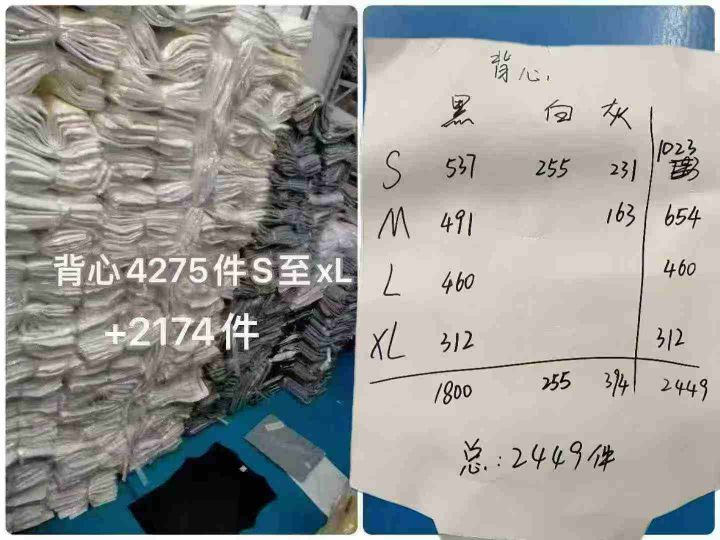 背心4275件S至xL
+2174件
背心.
黑 白 灰
S 537 255 231 1023
M 491 163 654
L 460 460
XL 312 312
1800 255 394 2449
总:2449件